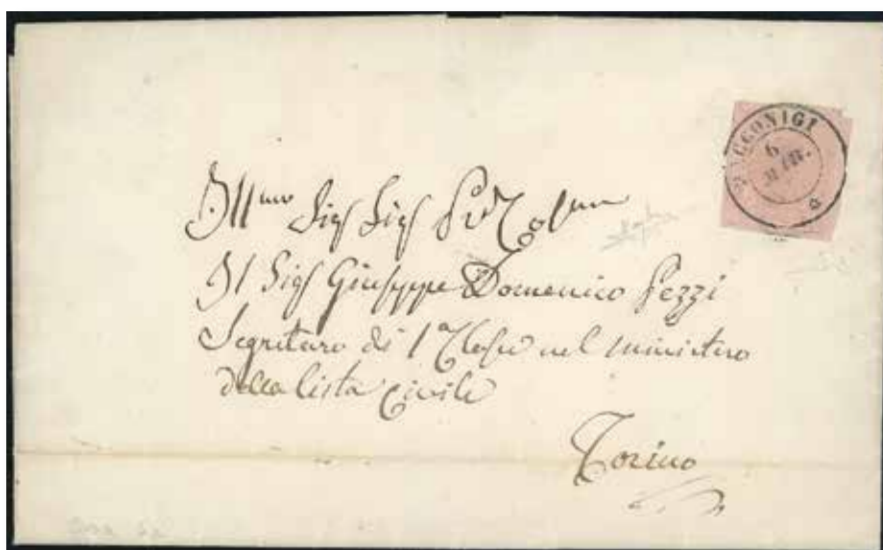 RACCONIGI
6
MAR.
Ill.mo Sig Sig P.ne Col.mo
Il Sig Giuseppe Domenico Pezzi
Segretaro di 1a Classe nel ministero
della lista Civile
Torino